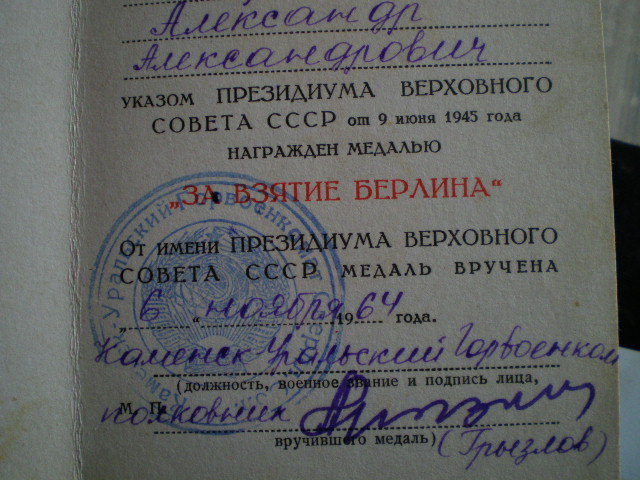 Александр
Александрович
УКАЗОМ ПРЕЗИДИУМА ВЕРХОВНОГО
СОВЕТА СССР от 9 июня 1945 года
НАГРАЖДЕН МЕДАЛЬЮ
„ЗА ВЗЯТИЕ БЕРЛИНА“
ОТ ИМЕНИ ПРЕЗИДИУМА ВЕРХОВНОГО
СОВЕТА СССР МЕДАЛЬ ВРУЧЕНА
„6“ ноября 1964 года.
Каменск-Уральский Горвоенком
(должность, военное звание и подпись лица,
М. П. полковник
вручившего медаль) (Грызлов)